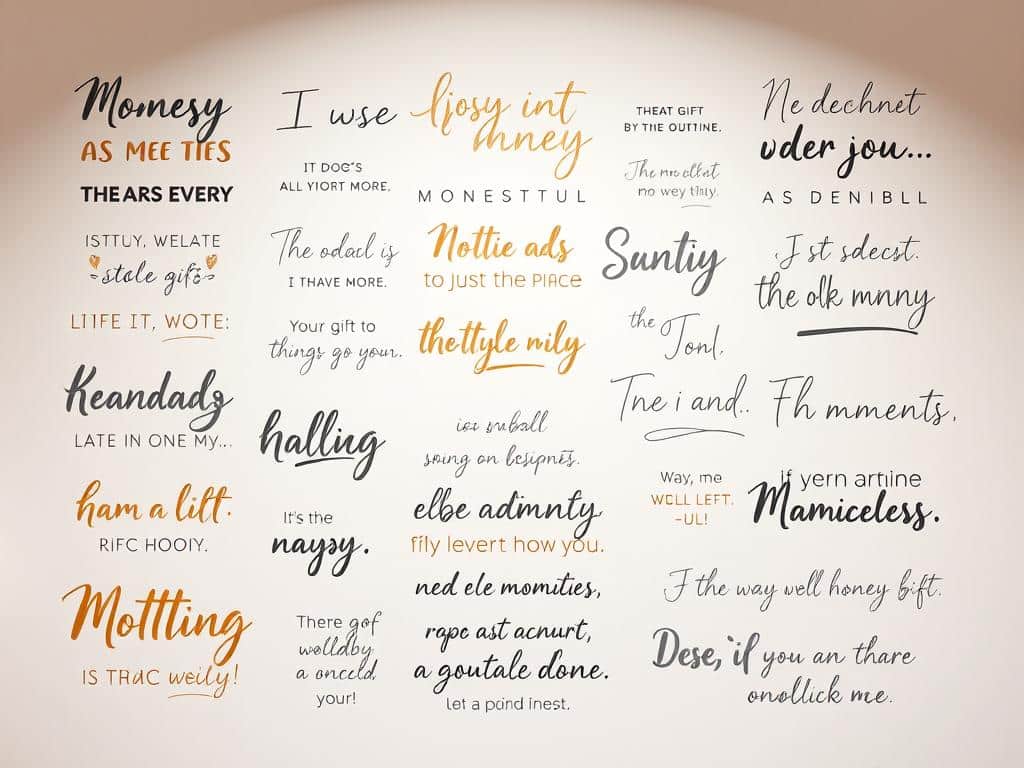 Momesy
AS MEE TIES
THEARS EVERY
ISTTUY, WELATE
stale gifs
LIIFE IT, WOTE:
Keandadg
LATE IN ONE My...
ham a lilt.
RIFC HOOIY.
Mottting
IS TRAC weily!
I wse
IT DOC'S
ALL YIORT MORE,
The odacl is
I THAVE MORE.
Your gift to
things go your.
hallug
It's the
nayşy.
There gof
wolldby
a onceld,
your!
ljosy int
mney
MONESTTUL
Nottie ads
to just the PIACE
thettyle mily
soing on
elbe adimnty
fily levert how you.
ned ele momities,
rape ast acnurt,
a goutale done.
let a pond inest.
THEAT GIFT
BY THE OUTTINE.
The
no wey
Suntiy
the
Tonl,
Tne i and..
Way, me
WCLL LEFT.
-UL!
Ne dechnet
vder jou...
AS DENIBLL
J st sdecst.
the olk mnny
Fh mments,
if yern artiine
Mamiceless.
F the way well honey bift.
Dese, if you an thare
onollick me.